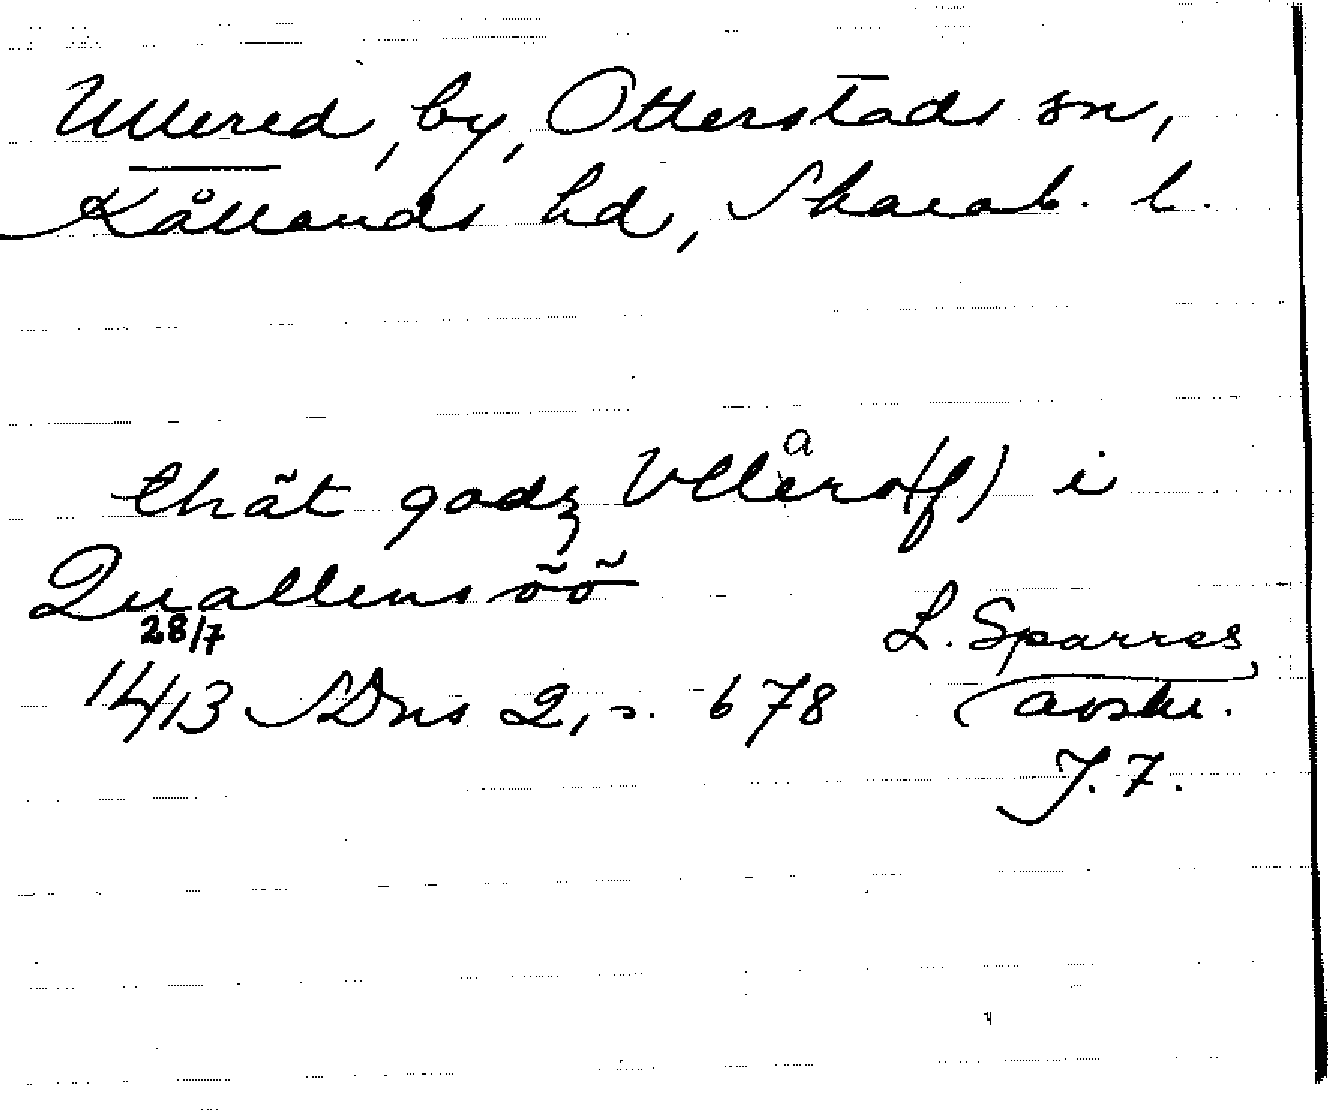 Ullered, by, Otterstads sn,
Kållands hd, Skarab. l.
thät godz Vllero(f) i
Quallensöö
28/7
1413 SDns 2, s. 678
L. Sparres
avskr.
J. 7.